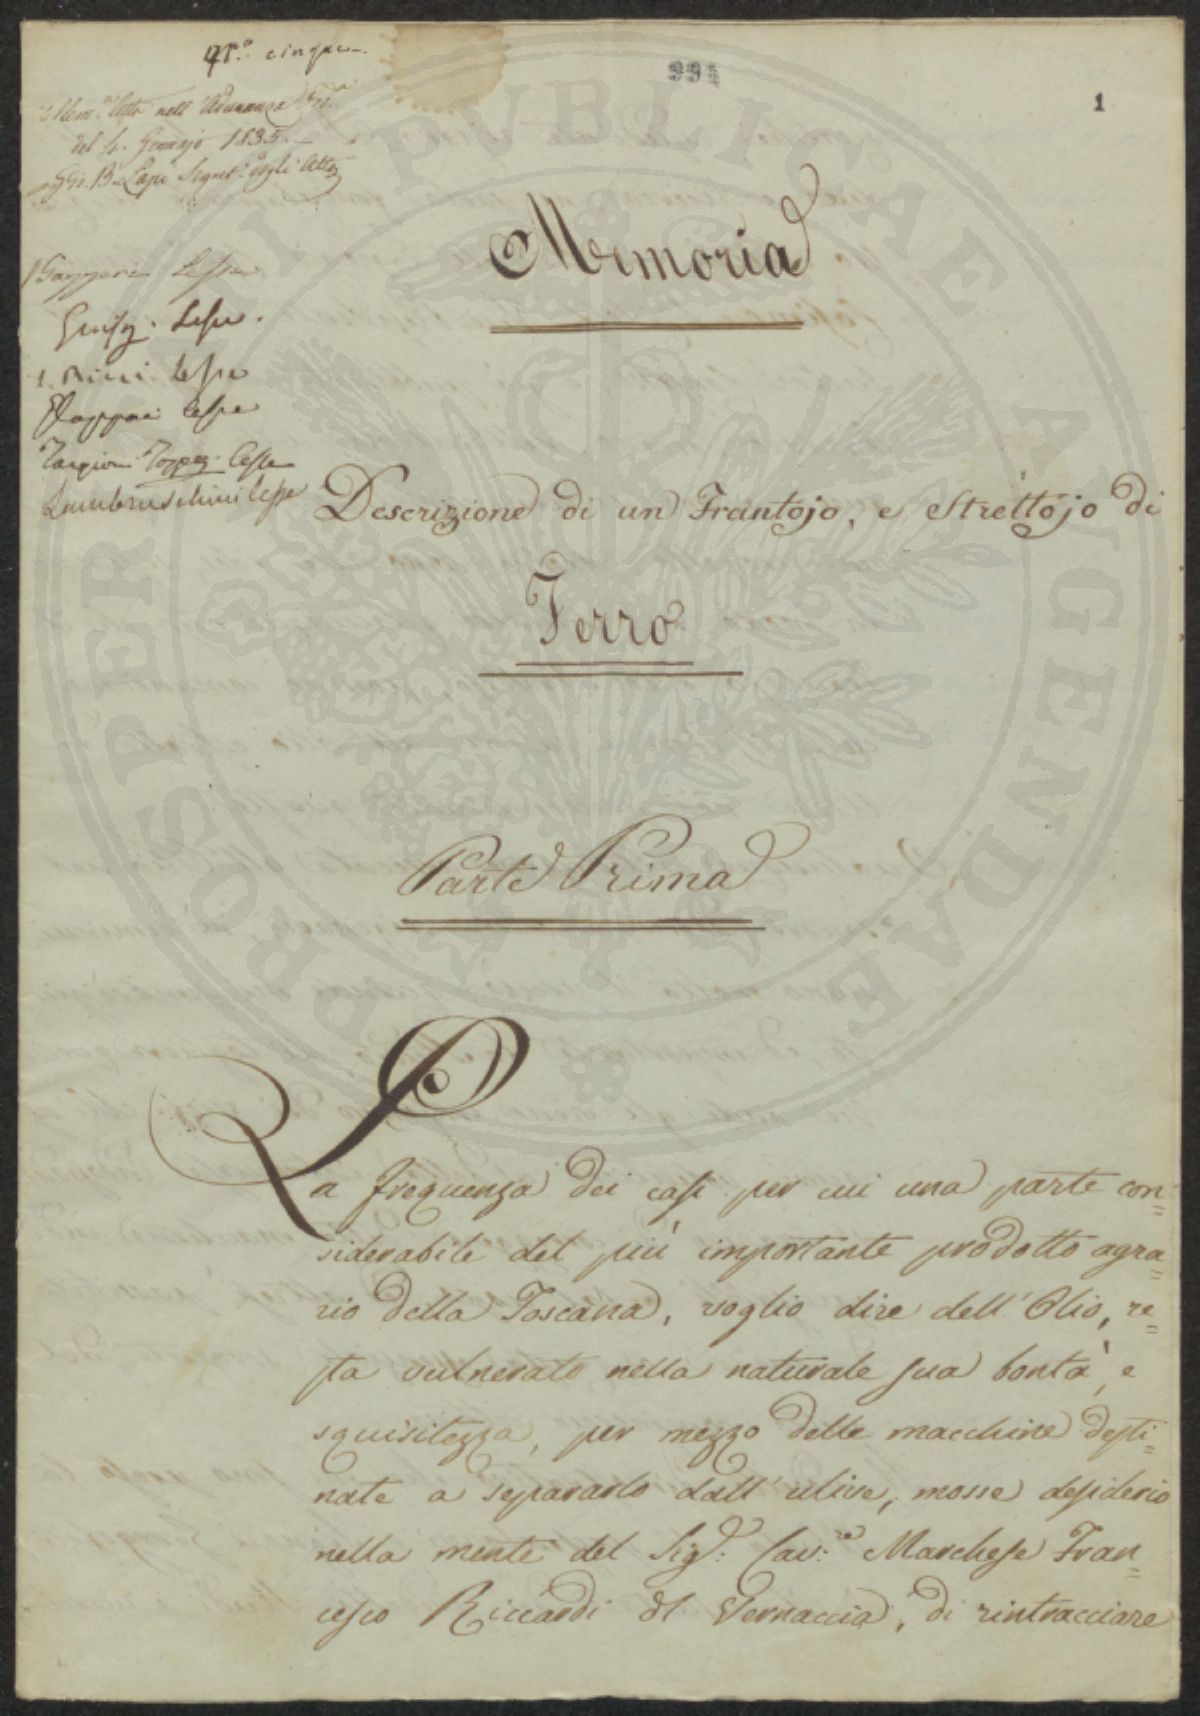 N.º cinque
Mem.ª letta nell'Adunanza Ord.ª
del 4. Gennajo 1835.
Gio. B. Lapi Segret.º degli Atti
994
1
Memoria
Gazzeri Lesse
Lesse.
Ricci Lesse
Lesse
Targioni Tozzez. Lesse
Lambruschini lesse
Descrizione di un Frantojo, e Strettojo di
Ferro
Parte Prima
La frequenza dei casi per cui una parte con=
siderabile del più importante prodotto agra=
rio della Toscana, voglio dire dell'Olio, re=
sta vulnerato nella naturale sua bontà, e
squisitezza, per mezzo delle macchine desti=
nate a separarlo dall'ulive, mosse desiderio
nella mente del Sig.: Cav:re Marchese Fran=
cesco Riccardi del Vernaccia, di rintracciare
PROSPERITATI PVBLICAE AVGENDAE